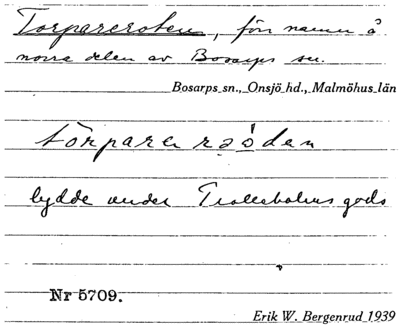 Torpareroten, förr namn å
norra delen av Bosarps sn.
Bosarps sn., Onsjö hd., Malmöhus län
törparerǡoden
lydde under Trolleholms gods
Nr 5709.
Erik W. Bergenrud 1939